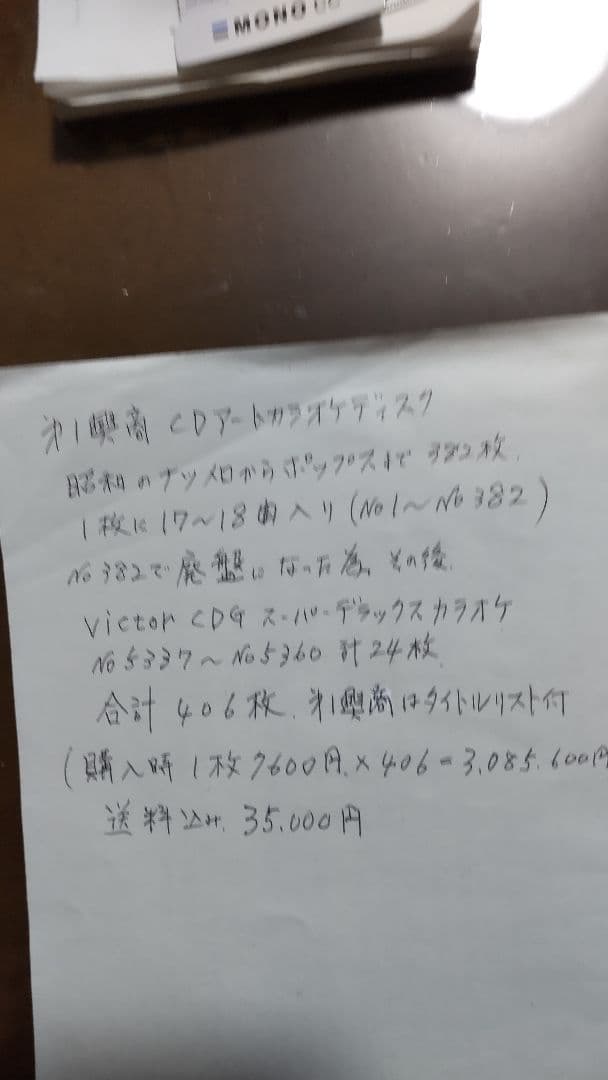 MONO
第1興商 CDアートカラオケディスク
昭和のナツメロからポップスまで 382枚.
1枚に17～18曲入り(No1～No382)
No382で廃盤になった為、その後.
Victor CDG スーパーデラックスカラオケ
No5337～No5360 計24枚.
合計 406枚. 第1興商はタイトルリスト付
(購入時 1枚7600円.×406=3,085.600円
送料込み. 35.000円